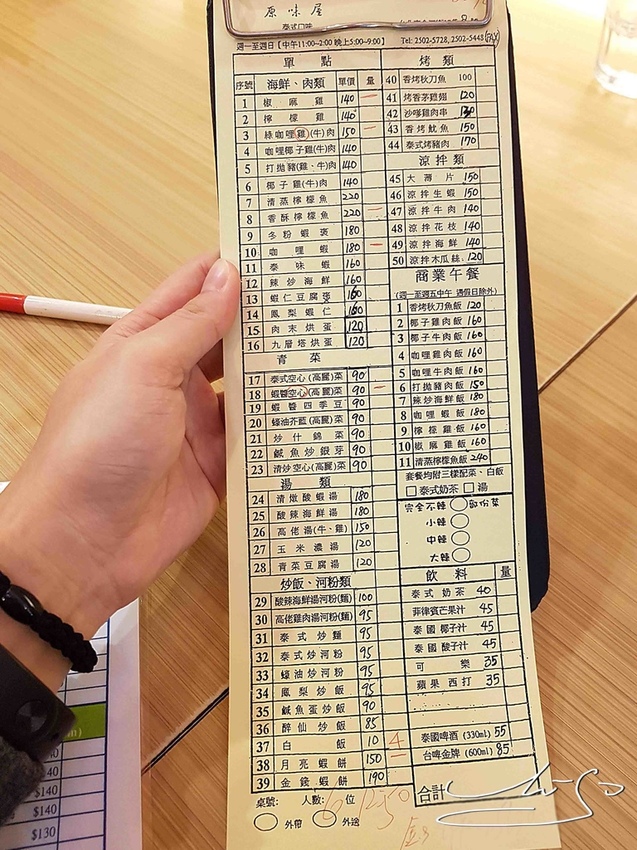 原味屋
泰式口味
週一至週日【中午11:00~2:00 晚上5:00~9:00】 Tel: 2502-5728, 2502-5448(FAX)
單點
序號 海鮮、肉類 單價 量
1 椒麻雞 140 一
2 檸檬雞 140
3 綠咖哩雞(牛)肉 150 一
4 咖哩椰子雞(牛)肉 140
5 打拋豬(雞、牛)肉 140
6 椰子雞(牛)肉 140
7 清蒸檸檬魚 220
8 香酥檸檬魚 220 一
9 冬粉蝦褒 180
10 咖哩蝦 180 一
11 泰味蝦 160
12 辣炒海鮮 160
13 蝦仁豆腐煲 160
14 鳳梨蝦仁 160
15 肉末烘蛋 120
16 九層塔烘蛋 120
青菜
17 泰式空心(高麗)菜 90
18 蝦醬空心(高麗)菜 90 一
19 蝦醬四季豆 90
20 蠔油芥藍(高麗)菜 90
21 炒什錦菜 90
22 鹹魚炒銀芽 90
23 清炒空心(高麗)菜 90
湯類
24 清燉酸蝦湯 180
25 酸辣海鮮湯 180
26 高佬湯(牛、雞) 150
27 玉米濃湯 120
28 青菜豆腐湯 120
炒飯、河粉類
29 酸辣海鮮湯河粉(麵) 100
30 高佬雞肉湯河粉(麵) 95
31 泰式炒麵 95
32 泰式炒河粉 95
33 蠔油炒河粉 95
34 鳳梨炒飯 95
35 鹹魚蛋炒飯 90
36 醉仙炒飯 85
37 白飯 10 4
38 月亮蝦餅 150 一
39 金錢蝦餅 190
桌號: 人數: 6 位
外帶 外送
烤類
40 香烤秋刀魚 100
41 烤香茅雞翅 120
42 沙嗲雞肉串 130
43 香烤魷魚 150
44 泰式烤豬肉 170
涼拌類
45 大薄片 150
46 涼拌生蝦 150
47 涼拌牛肉 140
48 涼拌花枝 140
49 涼拌海鮮 140
50 涼拌木瓜絲 120
商業午餐
(週一至週五中午 遇假日除外)
1 香烤秋刀魚飯 120
2 椰子雞肉飯 160
3 椰子牛肉飯 160
4 咖哩雞肉飯 160
5 咖哩牛肉飯 160
6 打拋豬肉飯 150
7 辣炒海鮮飯 180
8 咖哩蝦飯 180
9 檸檬雞飯 160
10 椒麻雞飯 160
11 清蒸檸檬魚飯 240
套餐均附三樣配菜、白飯
泰式奶茶 湯
完全不辣 部份菜
小辣
中辣
大辣
飲料 量
泰式奶茶 40
菲律賓芒果汁 45
泰國椰子汁 45
泰國酸子汁 45
可樂 35
蘋果西打 35
泰國啤酒 (330ml) 55
台啤金牌 (600ml) 85
合計
$140
$140
$130